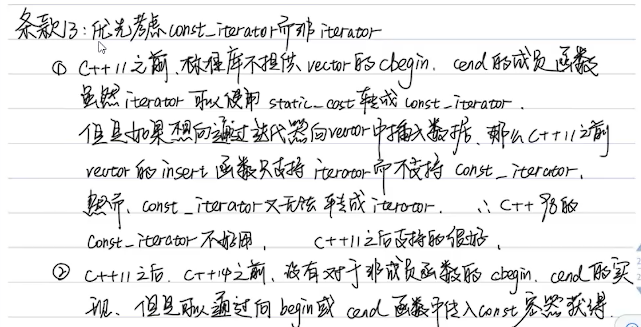 条款13:优先考虑const_iterator而非iterator
① C++11之前,标准库不提供vector的cbegin、cend的成员函数
虽然iterator可以使用static_cast转成const_iterator.
但是如果想向通过迭代器向vector中插入数据,那么C++11之前
vector的insert函数只支持iterator而不支持const_iterator,
然而,const_iterator又无法转成iterator. ∴C++98的
const_iterator不好用, C++11之后支持的很好,
② C++11之后、C++14之前,没有对于非成员函数的cbegin、cend的实
现、但是可以通过向begin或cend函数中传入const容器获得.